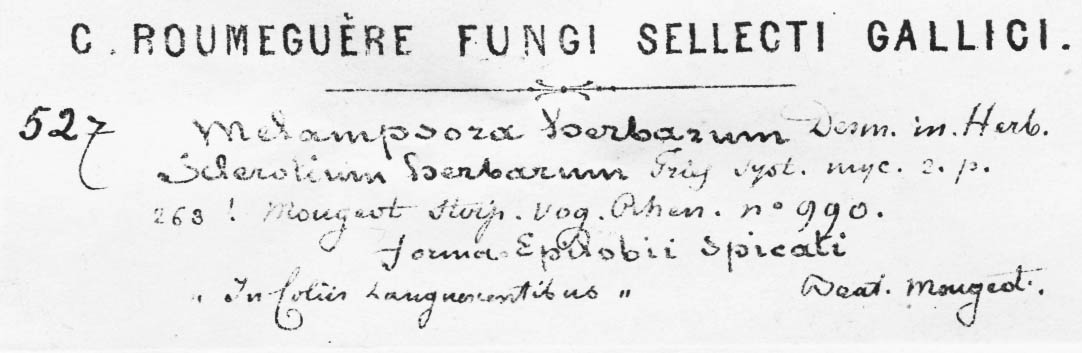 C. ROUMEGUÈRE FUNGI SELLECTI GALLICI.
527 Melampsora herbarum Desm. in. Herb.
Sclerotium herbarum Fries Syst. myc. 2. p.
263 ! Mougeot Stirp. Vog. Rhen. no 990.
forma Epilobii Spicati
„ In foliis Languescentibus „ Mougeot.